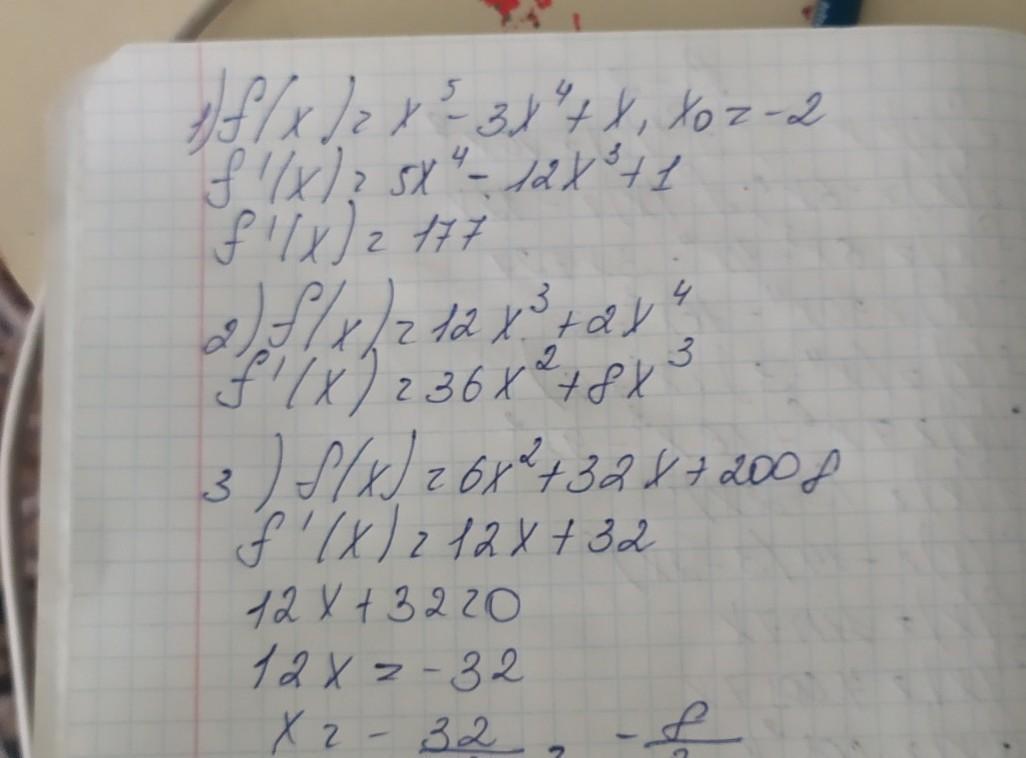 1) f(x) = x⁵ - 3x⁴ + x, x₀ = -2
f'(x) = 5x⁴ - 12x³ + 1
f'(x) = 177
2) f(x) = 12x³ + 2x⁴
f'(x) = 36x² + 8x³
3) f(x) = 6x² + 32x + 2008
f'(x) = 12x + 32
12x + 32 = 0
12x = -32
x = - 32 = - 8